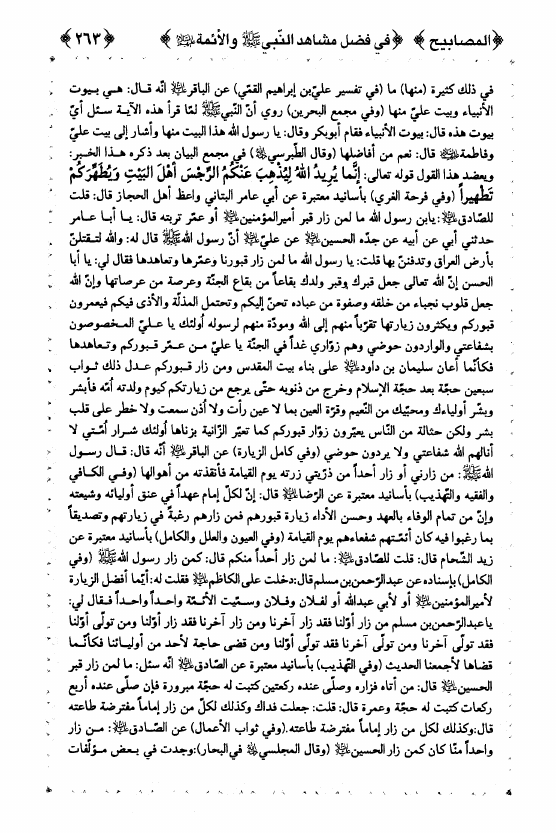 ﴿المصابيح﴾ ﴿في فضل مشاهد النّبي ﷺ والأئمة﴾ ﴿٢٦٣﴾
في ذلك كثيرة (منها) ما (في تفسير عليّ بن إبراهيم القمّي) عن الباقر انّه قـال: هـي بـيوت
الأنبياء وبيت عليّ منها (وفي مجمع البحرين) روي أنّ النّبي ﷺ لمّا قرأ هذه الآيـة سـئل أيّ
بيوت هذه قال: بيوت الأنبياء فقام أبوبكر وقال: يا رسول الله هذا البيت منها وأشار إلى بيت عليّ
وفاطمة قال: نعم من أفاضلها (وقال الطّبرسي) في مجمع البيان بعد ذكره هـذا الخبر:
ويعضد هذا القول قوله تعالى: إنَّما يُرِيدُ اللهُ لِيُذهِبَ عَنكُمُ الرِّجْسَ أهْلَ البَيْتِ وَيُطَهِّرَكُمْ
تَطْهِيراً (وفي فرحة الغري) بأسانيد معتبرة عن أبي عامر البناني واعظ أهل الحجاز قال: قلت
للصّادق: يابن رسول الله ما لمن زار قبر أميرالمؤمنين أو عمّر تربته قال: يـا أبـا عـامر
حدثني أبي عن أبيه عن جدّه الحسين عن عليّ أنّ رسول الله ﷺ قال له: والله لتـقتلنّ
بأرض العراق وتدفننّ بها قلت: يا رسول الله ما لمن زار قبورنا وعمّرها وتعاهدها فقال لي: يا أبا
الحسن إنّ الله تعالى جعل قبرك وقبر ولدك بقاعاً من بقاع الجنّة وعرصة من عرصاتها وإنّ الله
جعل قلوب نجباء من خلقه وصفوة من عباده تحنّ إليكم وتحتمل المذلّة والأذى فيكم فيعمرون
قبوركم ويكثرون زيارتها تقرّباً منهم إلى الله ومودّة منهم لرسوله أولئك يا عـليّ المـخصوصون
بشفاعتي والواردون حوضي وهم زوّاري غداً في الجنّة يا عليّ مـن عـمّر قـبوركم وتـعاهدها
فكأنّما أعان سليمان بن داود على بناء بيت المقدس ومن زار قبوركم عـدل ذلك ثـواب
سبعين حجّة بعد حجّة الإسلام وخرج من ذنوبه حتّى يرجع من زيارتكم كيوم ولدته أمّه فأبشر
وبشّر أولياءك ومحبّيك من النّعيم وقرّة العين بما لا عين رأت ولا أذن سمعت ولا خطر على قلب
بشر ولكن حثالة من النّاس يعيّرون زوّار قبوركم كما تعيّر الزّانية بزناها أولئك شـرار أمّـتي لا
أنالهم الله شفاعتي ولا يردون حوضي (وفي كامل الزيارة) عن الباقر أنّه قال: قـال رسـول
الله ﷺ: من زارني أو زار أحداً من ذرّيتي زرته يوم القيامة فأنقذته من أهوالها (وفـي الكـافي
والفقيه والتّهذيب) بأسانيد معتبرة عن الرّضا قال: إنّ لكلّ إمام عهداً في عنق أوليائه وشيعته
وإنّ من تمام الوفاء بالعهد وحسن الأداء زيارة قبورهم فمن زارهم رغبةً في زيارتهم وتصديقاً
بما رغبوا فيه كان أئمّتهم شفعاءهم يوم القيامة (وفي العيون والعلل والكامل) بأسانيد معتبرة عن
زيد الشّحام قال: قلت للصّادق: ما لمن زار أحداً منكم قال: كمن زار رسول الله ﷺ (وفي
الكامل) بإسناده عن عبدالرّحمن بن مسلم قال: دخلت على الكاظم فقلت له: أيّما أفضل الزيارة
لأميرالمؤمنين أو لأبي عبدالله أو لفـلان وفـلان وسـمّيت الأئـمّة واحـداً واحـداً فـقال لي:
ياعبدالرّحمن بن مسلم من زار أوّلنا فقد زار آخرنا ومن زار آخرنا فقد زار أوّلنا ومن تولّى أوّلنا
فقد تولّى آخرنا ومن تولّى آخرنا فقد تولّى أوّلنا ومن قضى حاجة لأحد من أوليـائنا فكأنّـما
قضاها لأجمعنا الحديث (وفي التّهذيب) بأسانيد معتبرة عن الصّادق انّه سئل: ما لمن زار قبر
الحسين قال: من أتاه فزاره وصلّى عنده ركعتين كتبت له حجّة مبرورة فإن صلّى عنده أربع
ركعات كتبت له حجّة وعمرة قال: قلت: جعلت فداك وكذلك لكلّ من زار إماماً مفترضة طاعته
قال: وكذلك لكل من زار إماماً مفترضة طاعته. (وفي ثواب الأعمال) عن الصّادق: مـن زار
واحداً منّا كان كمن زار الحسين (وقال المجلسي في البحار): وجدت في بـعض مـؤلّفات